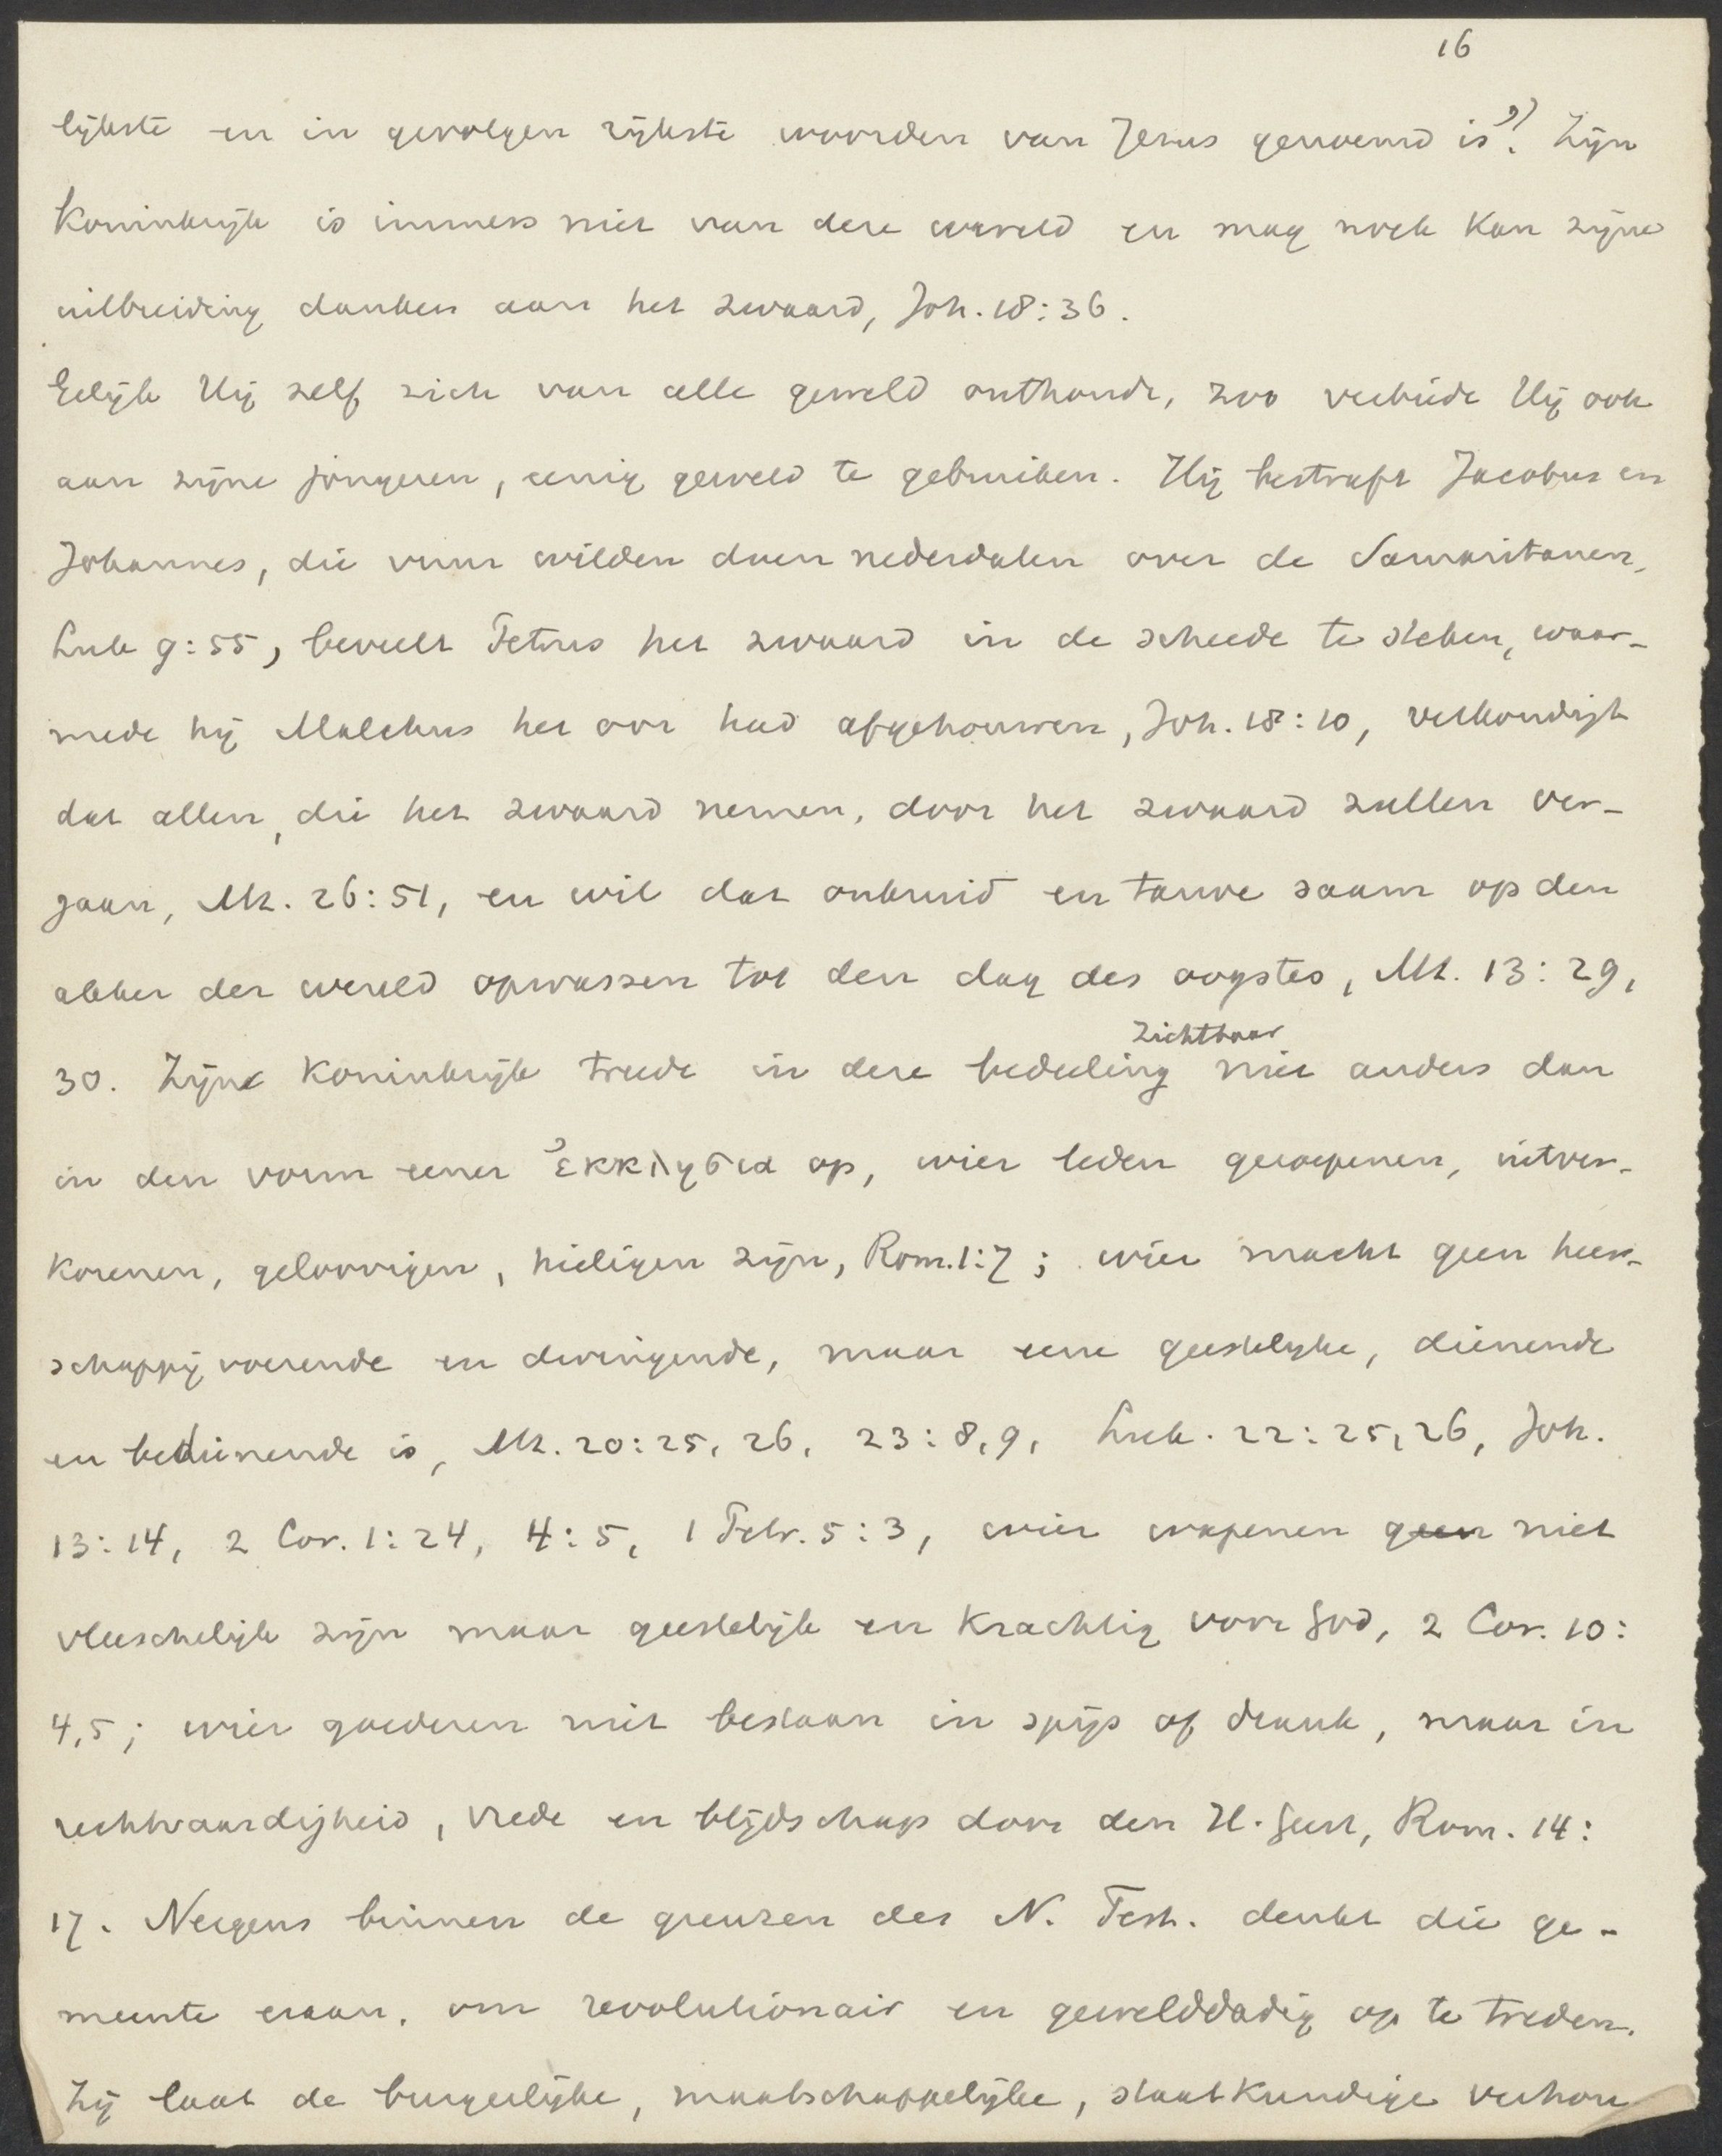 16
lijkste en in gevolgen rijkste woorden van Jezus genoemd is?²⁾ Zijn
Koninkrijk is immers niet van deze wereld en mag noch kan zijne
uitbreiding danken aan het zwaard, Joh. 18:36.
Gelijk Hij zelf zich van alle geweld onthoudt, zoo verbiedt Hij ook
aan zijne jongeren, eenig geweld te gebruiken. Hij bestraft Jacobus en
Johannes, die vuur wilden doen nederdalen over de Samaritanen,
Luk 9:55, beveelt Petrus het zwaard in de scheede te steken, waar-
mede hij Malchus het oor had afgehouwen, Joh. 18:10, verkondigt
dat allen, die het zwaard nemen, door het zwaard zullen ver-
gaan, Mt. 26:51, en wil dat onkruid en tarwe saam op den
akker der wereld opwassen tot den dag des oogstes, Mt. 13:29,
zichtbaar
30. Zijn Koninkrijk treedt in deze bedeeling niet anders dan
in den vorm eener ἐκκλησια op, wier leden geroepenen, uitver-
korenen, geloovigen, heiligen zijn, Rom. 1:7; wier macht geen heer-
schappijvoerende en dwingende, maar eene geestelijke, dienende
en bedienende is, Mt. 20:25, 26, 23:8,9, Luk. 22:25,26, Joh.
13:14, 2 Cor. 1:24, 4:5, 1 Petr. 5:3, wier wapenen geen niet
vleeschelijk zijn maar geestelijk en krachtig voor God, 2 Cor. 10:
4,5; wier goederen niet bestaan in spijs of drank, maar in
rechtvaardigheid, vrede en blijdschap door den H. Geest, Rom. 14:
17. Nergens binnen de grenzen des N. Test. denkt die ge-
meente eraan, om revolutionair en gewelddadig op te treden.
Zij laat de burgerlijke, maatschappelijke, staatkundige verhou